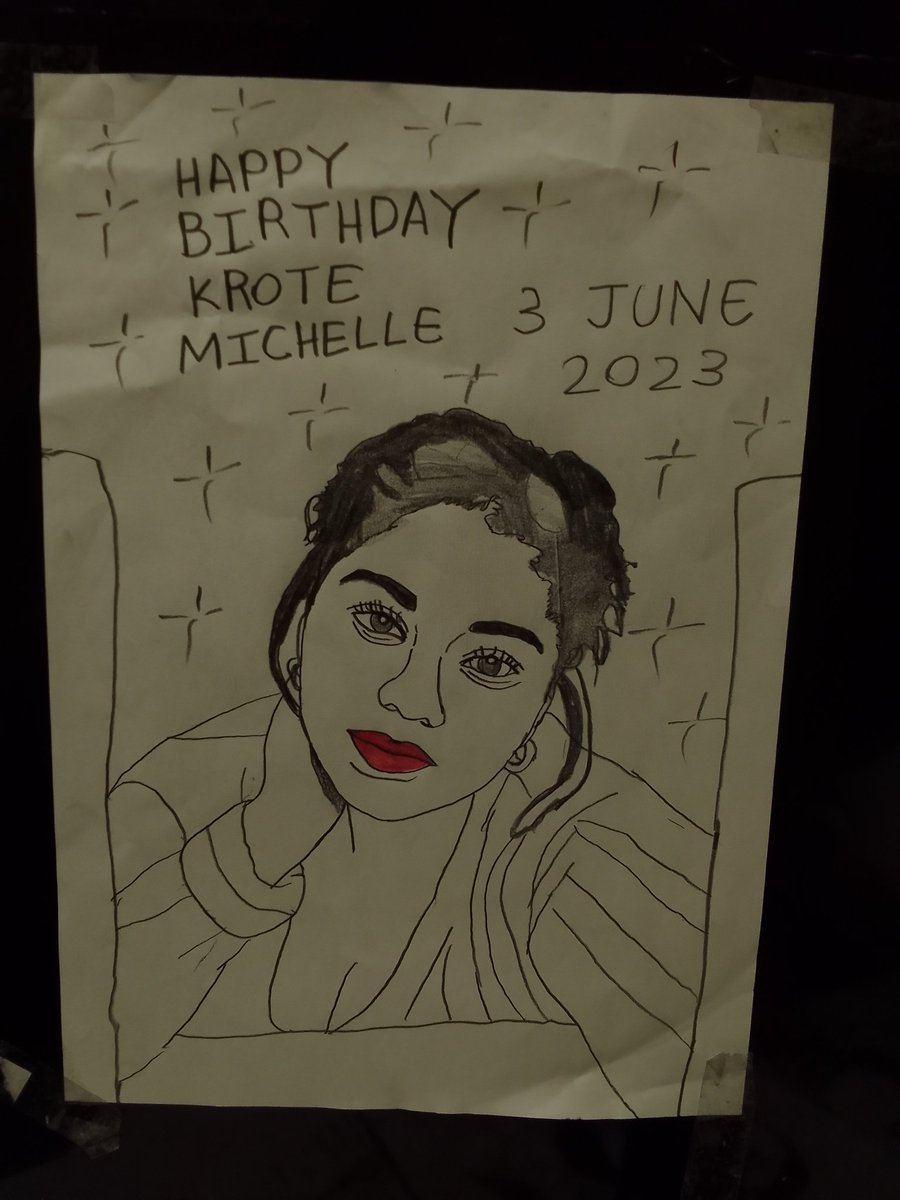 HAPPY
BIRTHDAY
KROTE
MICHELLE
3 JUNE
2023